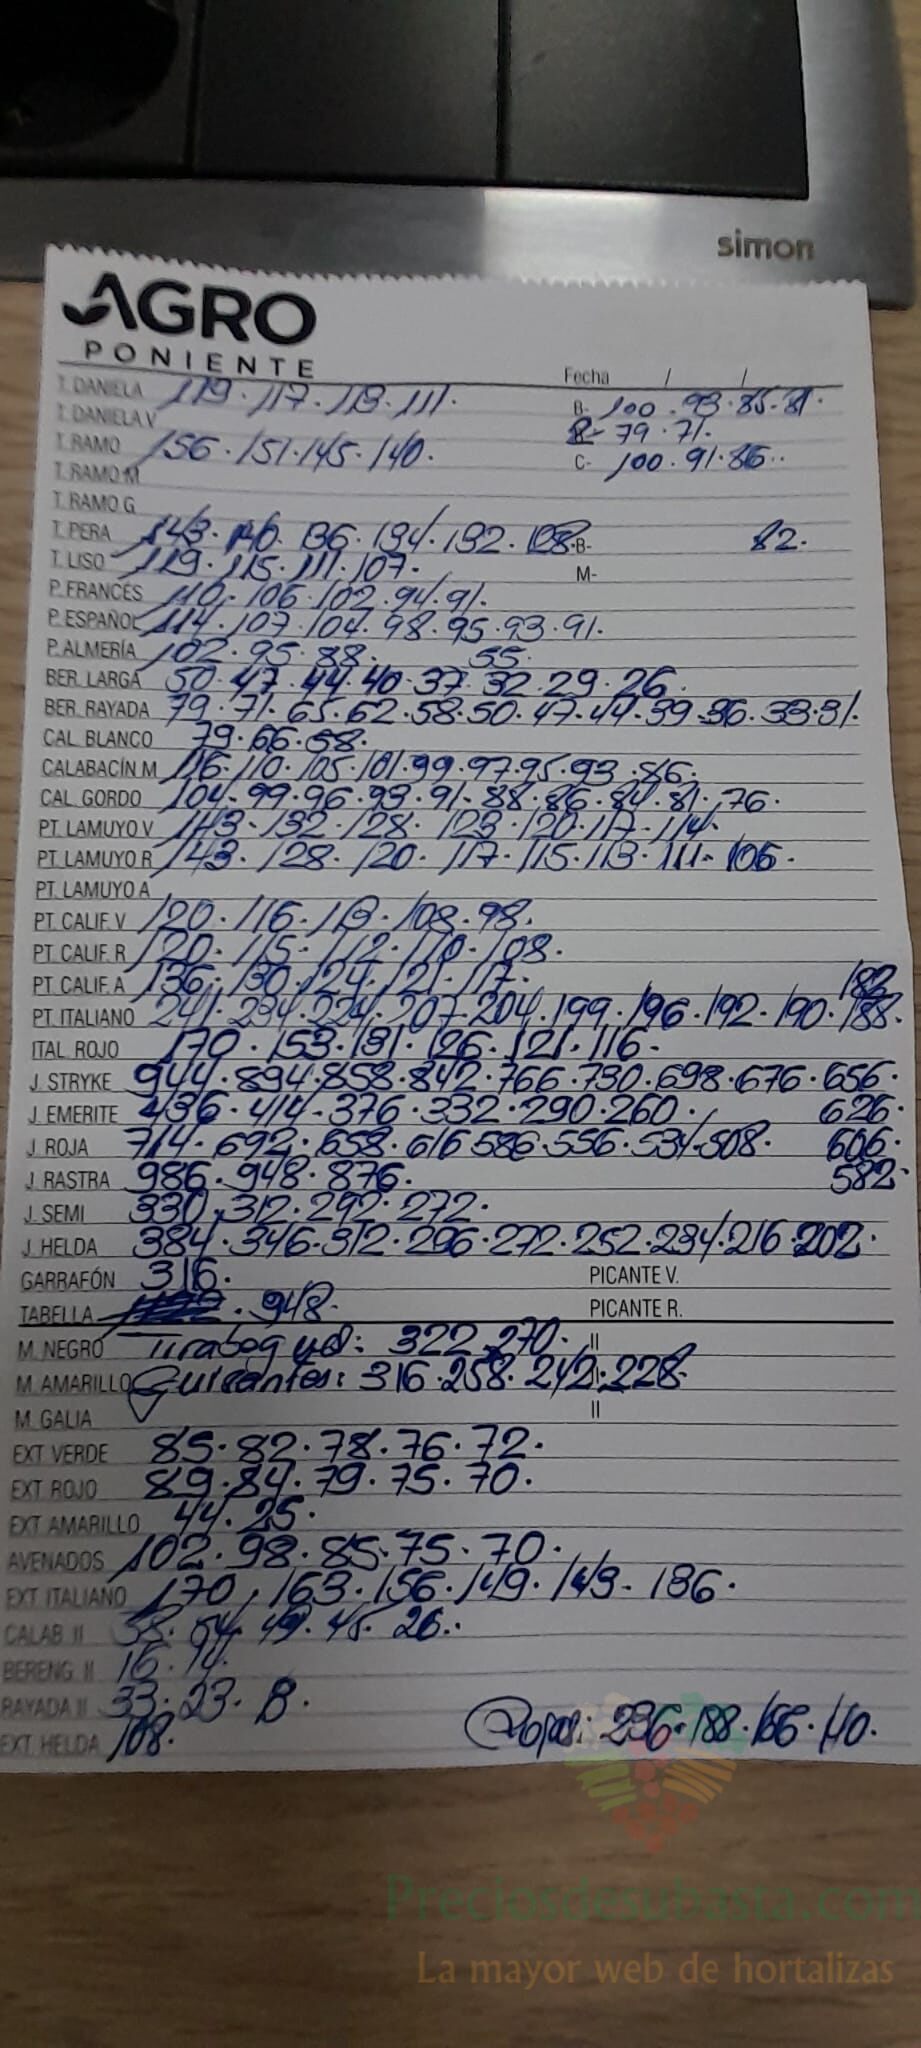 simon
AGRO
PONIENTE
Fecha / /
T. DANELA 119. 117. 113. 111. B- 100. 93. 85. 81.
T. DANIELA V R- 79. 71.
T. RAMO 156. 151. 145. 140. C- 100. 91. 86..
T. RAMO M
T. RAMO G
T. PERA 143. 140. 136. 134. 132. 128. B- 82.
T. LISO 119. 115. 111. 107. M-
P. FRANCÉS 110. 106. 102. 94. 91.
P. ESPAÑOL 114. 107. 104. 98. 95. 93. 91.
P. ALMERÍA 102. 95. 88. 55.
BER. LARGA 50. 47. 44. 40. 37. 32. 29. 26.
BER. RAYADA 79. 71. 65. 62. 58. 50. 47. 44. 39. 36. 33. 31.
CAL. BLANCO 79. 66. 58.
CALABACÍN M 116. 110. 105. 101. 99. 97. 95. 93. 86.
CAL. GORDO 104. 99. 96. 93. 91. 88. 86. 84. 81. 76.
PT. LAMUYO V 143. 132. 128. 123. 120. 117. 114.
PT. LAMUYO R 143. 128. 120. 117. 115. 113. 111. 106.
PT. LAMUYO A
PT. CALIF. V 120. 116. 113. 108. 98.
PT. CALIF. R 120. 115. 112. 110. 108.
PT. CALIF. A 136. 130. 124. 121. 117. 182
PT. ITALIANO 241. 234. 224. 207. 204. 199. 196. 192. 190. 188.
ITAL. ROJO 170. 153. 131. 126. 121. 116.
J. STRYKE 944. 894. 858. 842. 766. 730. 698. 676. 656.
J. EMERITE 436. 414. 376. 332. 290. 260. 626.
J. ROJA 714. 692. 658. 616 586. 556. 534. 508. 606.
J. RASTRA 986. 948. 876. 582.
J. SEMI 330. 312. 292. 272.
J. HELDA 384. 346. 312. 296. 272. 252. 234. 216. 202.
GARRAFÓN 316. PICANTE V.
TABELLA . 948. PICANTE R.
M. NEGRO Tirabeques: 322. 270. II
M. AMARILLO Guisantes: 316. 258. 242. 228. II
M. GALIA II
EXT VERDE 85. 82. 78. 76. 72.
EXT ROJO 89. 84. 79. 75. 70.
EXT AMARILLO 44. 25.
AVENADOS 102. 98. 85. 75. 70.
EXT ITALIANO 170. 163. 156. 149. 143. 136.
CALAB. II 58. 54. 49. 45. 26..
BERENG. II 16. 14.
RAYADA II 33. 23. 13.
EXT. HELDA 108. 236. 188. 156. 140.
Preciosdesubasta.com
La mayor web de hortalizas